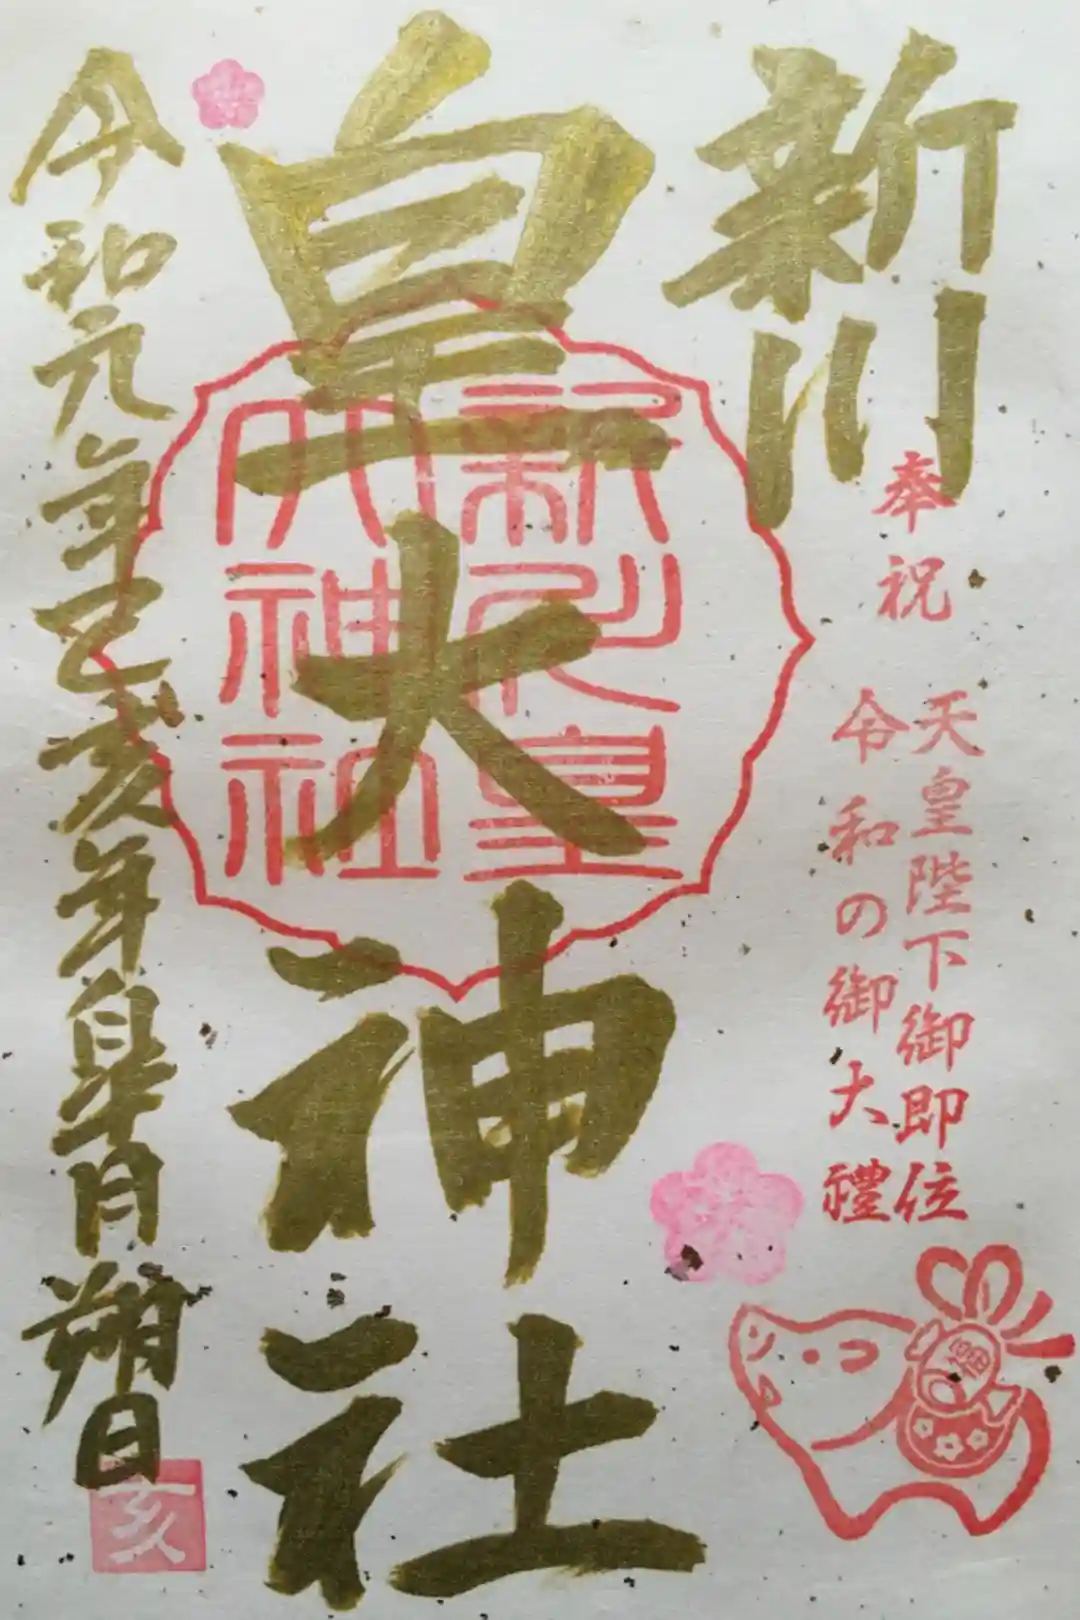 新川
皇大神社
奉祝
天皇陛下御即位
令和の御大禮
新川皇
大神社
令和元年己亥年皐月朔日
亥
福